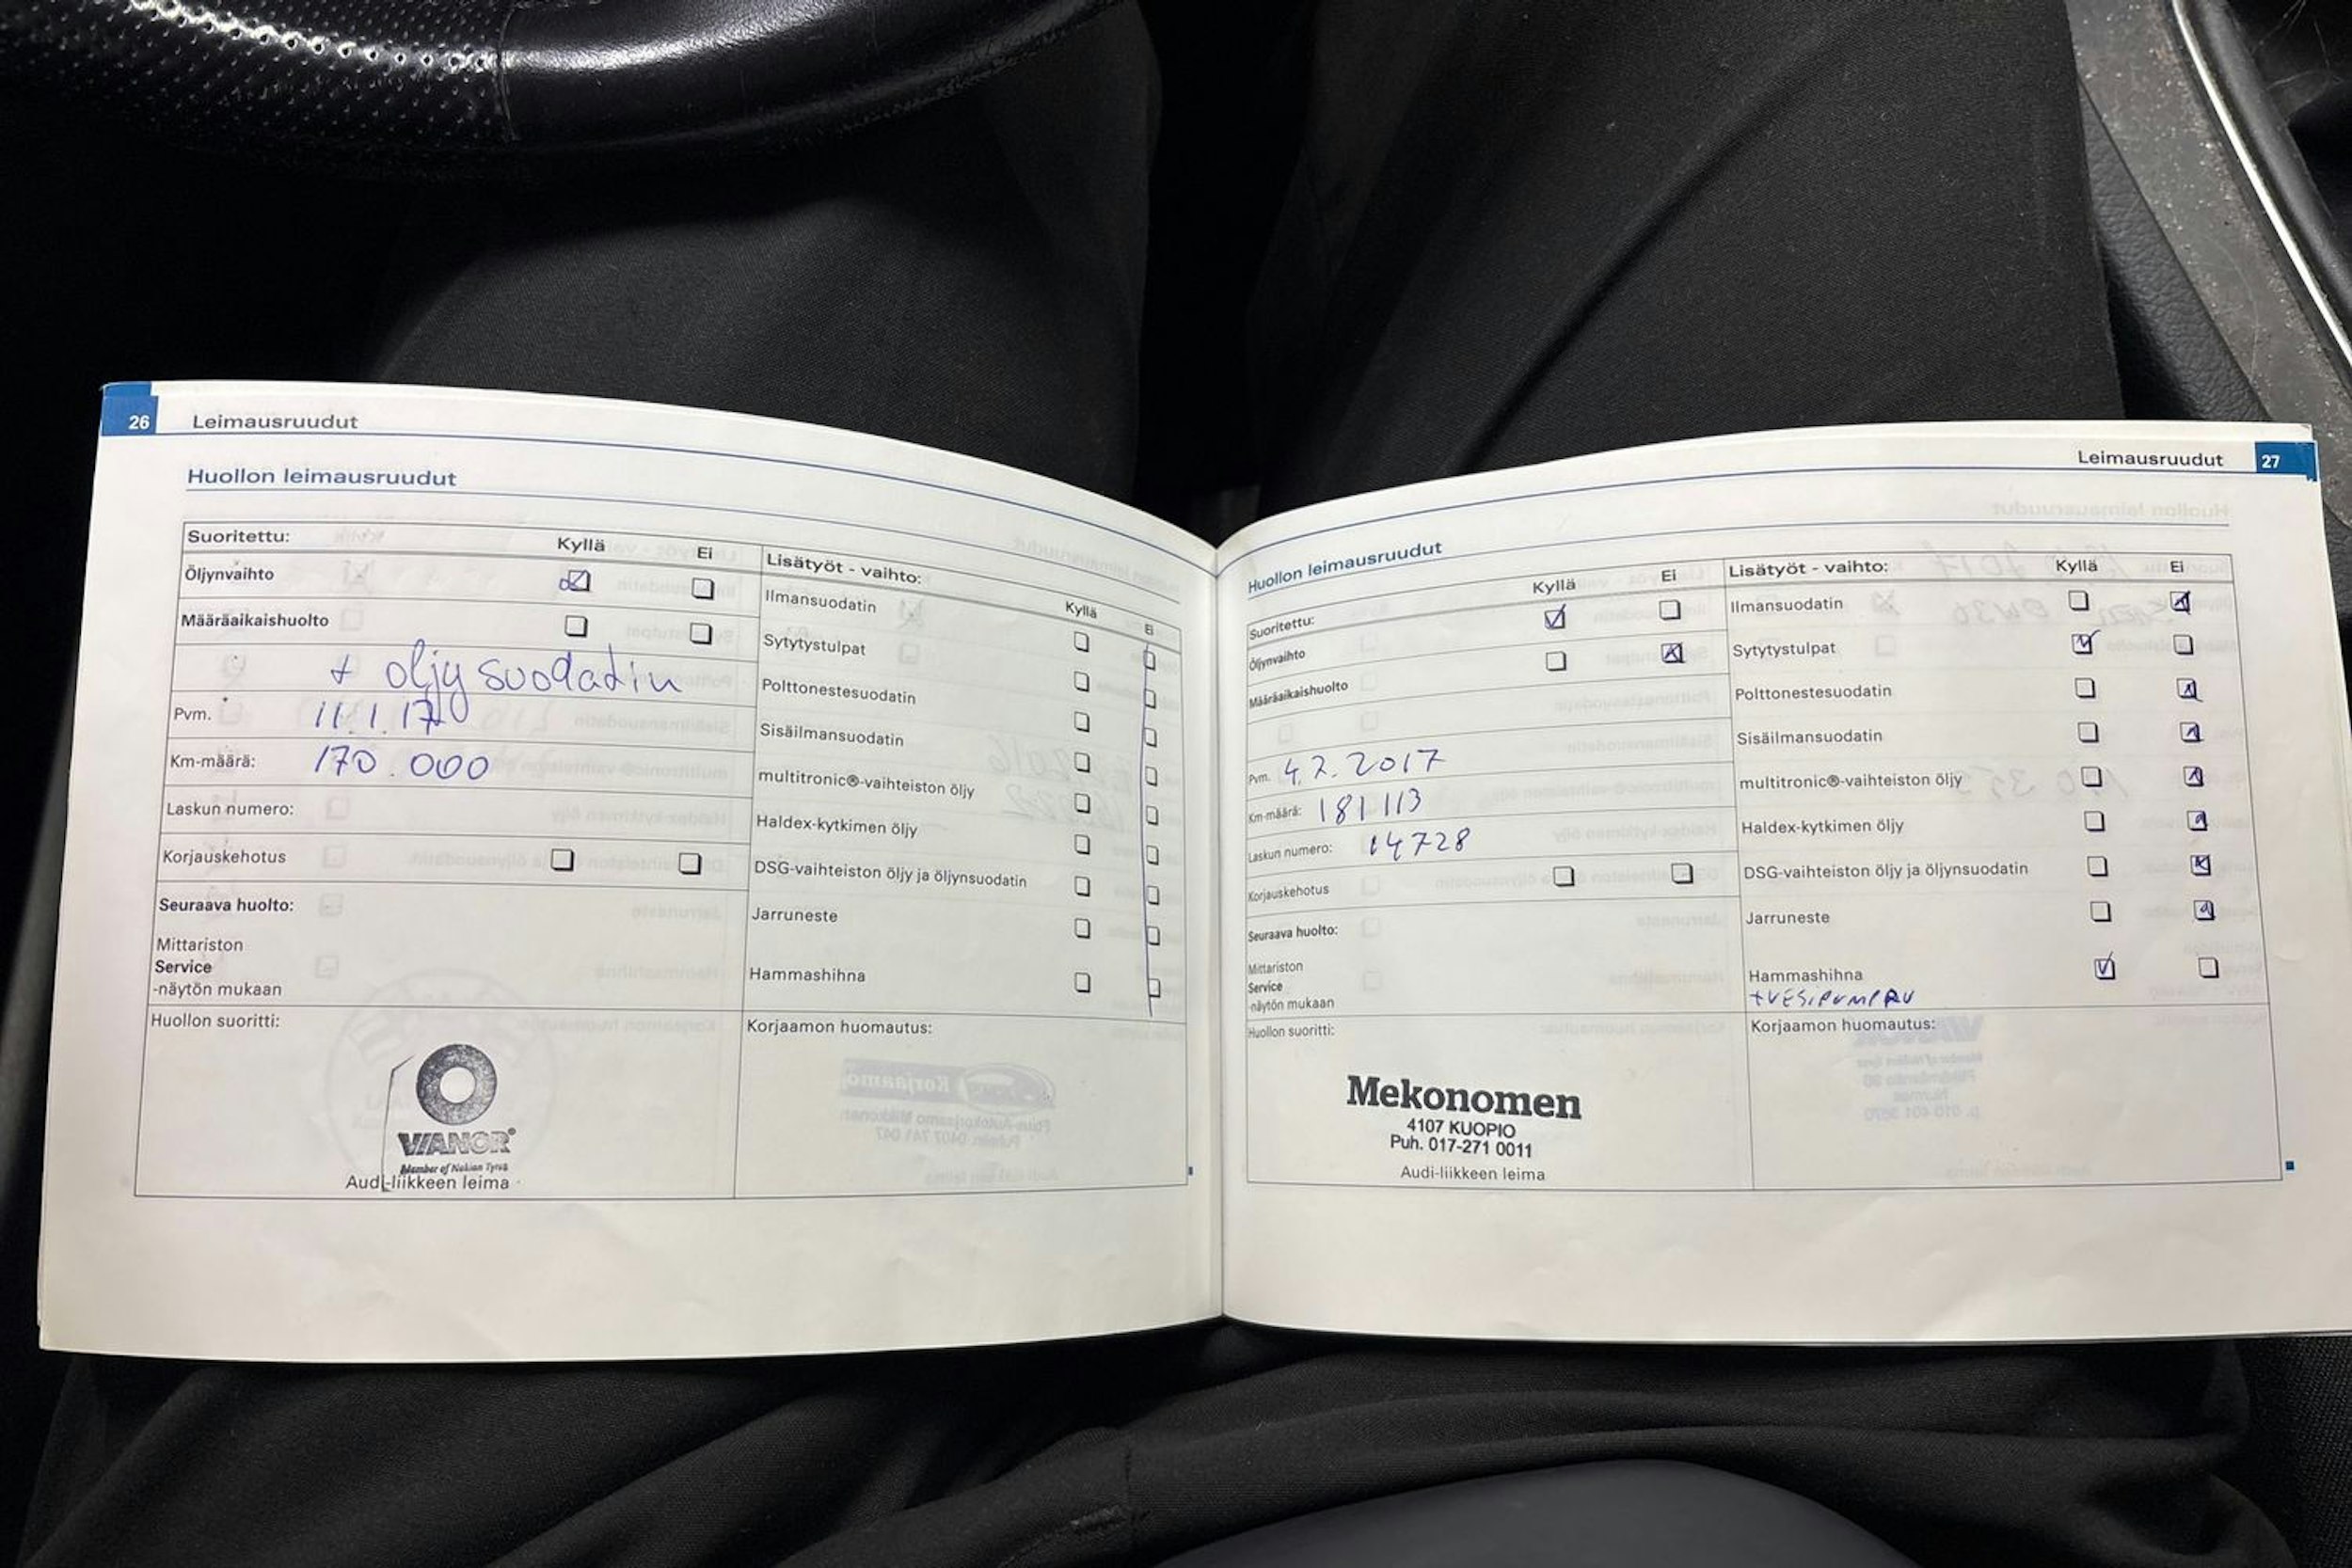 26 Leimausruudut
Huollon leimausruudut
Suoritettu: Kyllä Ei
Öljynvaihto
Määräaikaishuolto
+ öljysuodatin
Pvm. 11.1.17
Km-määrä: 170.000
Laskun numero:
Korjauskehotus
Seuraava huolto:
Mittariston
Service
-näytön mukaan
Huollon suoritti:
VIANOR®
Member of Nokian Tyres
Audi-liikkeen leima
Lisätyöt - vaihto: Kyllä Ei
Ilmansuodatin
Sytytystulpat
Polttonestesuodatin
Sisäilmansuodatin
multitronic®-vaihteiston öljy
Haldex-kytkimen öljy
DSG-vaihteiston öljy ja öljynsuodatin
Jarruneste
Hammashihna
Korjaamon huomautus:
Leimausruudut 27
Huollon leimausruudut
Suoritettu: Kyllä Ei
Öljynvaihto
Määräaikaishuolto
Pvm. 4.7.2017
Km-määrä: 181 113
Laskun numero: 14728
Korjauskehotus
Seuraava huolto:
Mittariston
Service
-näytön mukaan
Huollon suoritti:
Mekonomen
4107 KUOPIO
Puh. 017-271 0011
Audi-liikkeen leima
Lisätyöt - vaihto: Kyllä Ei
Ilmansuodatin
Sytytystulpat
Polttonestesuodatin
Sisäilmansuodatin
multitronic®-vaihteiston öljy
Haldex-kytkimen öljy
DSG-vaihteiston öljy ja öljynsuodatin
Jarruneste
Hammashihna
+VESIPUMPPU
Korjaamon huomautus: